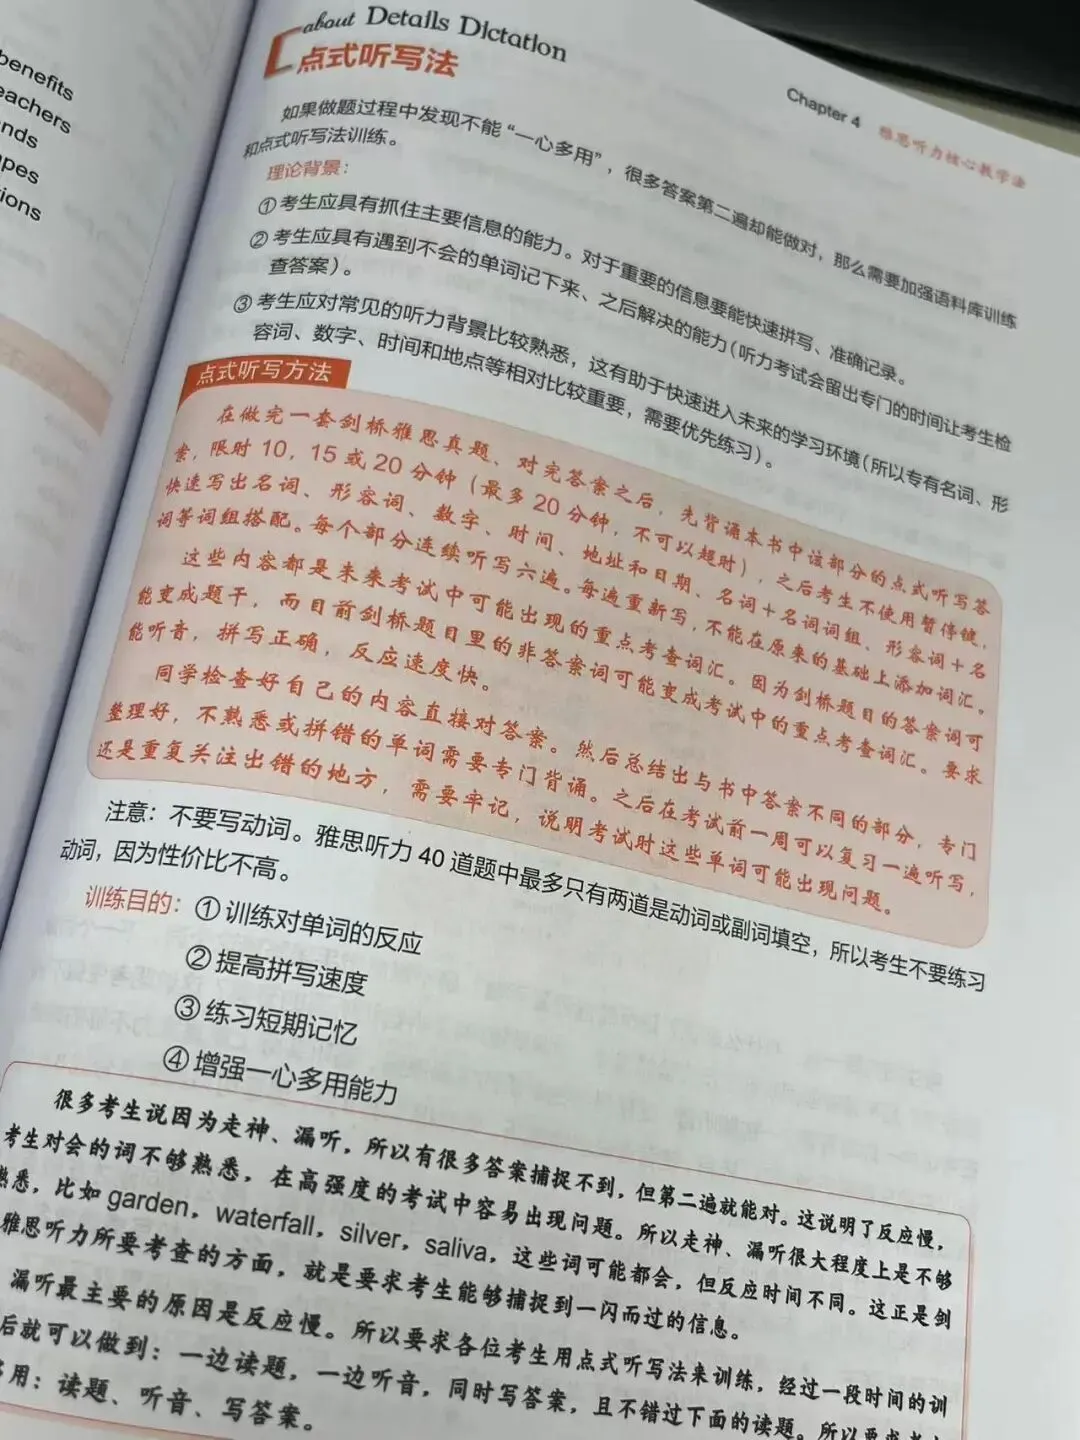 benefits
eachers
nds
pes
tions
about Details Dictation
点式听写法
Chapter 4 雅思听力核心教学法
如果做题过程中发现不能“一心多用”，很多答案第二遍却能做对，那么需要加强语料库训练
和点式听写法训练。
理论背景：
① 考生应具有抓住主要信息的能力。对于重要的信息要能快速拼写、准确记录。
② 考生应具有遇到不会的单词记下来、之后解决的能力（听力考试会留出专门的时间让考生检
查答案）。
③ 考生应对常见的听力背景比较熟悉，这有助于快速进入未来的学习环境（所以专有名词、形
容词、数字、时间和地点等相对比较重要，需要优先练习）。
点式听写方法
在做完一套剑桥雅思真题、对完答案之后，先背诵本书中该部分的点式听写答
案，限时 10，15 或 20 分钟（最多 20 分钟，不可以超时），之后考生不使用暂停键，
快速写出名词、形容词、数字、时间、地址和日期、名词＋名词词组、形容词＋名
词等词组搭配。每个部分连续听写六遍。每遍重新写，不能在原来的基础上添加词汇。
这些内容都是未来考试中可能出现的重点考查词汇。因为剑桥题目的答案词可
能变成题干，而目前剑桥题目里的非答案词可能变成考试中的重点考查词汇。要求
能听音，拼写正确，反应速度快。
同学检查好自己的内容直接对答案。然后总结出与书中答案不同的部分，专门
整理好，不熟悉或拼错的单词需要专门背诵。之后在考试前一周可以复习一遍听写，
还是重复关注出错的地方，需要牢记，说明考试时这些单词可能出现问题。
注意：不要写动词。雅思听力 40 道题中最多只有两道是动词或副词填空，所以考生不要练习
动词，因为性价比不高。
训练目的：① 训练对单词的反应
② 提高拼写速度
③ 练习短期记忆
④ 增强一心多用能力
很多考生说因为走神、漏听，所以有很多答案捕捉不到，但第二遍就能对。这说明了反应慢，
考生对会的词不够熟悉，在高强度的考试中容易出现问题。所以走神、漏听很大程度上是不够
熟悉，比如 garden，waterfall，silver，saliva，这些词可能都会，但反应时间不同。这正是剑
雅思听力所要考查的方面，就是要求考生能够捕捉到一闪而过的信息。
漏听最主要的原因是反应慢。所以要求各位考生用点式听写法来训练，经过一段时间的训
后就可以做到：一边读题，一边听音，同时写答案，且不错过下面的读题。所以要求考
用：读题、听音、写答案。